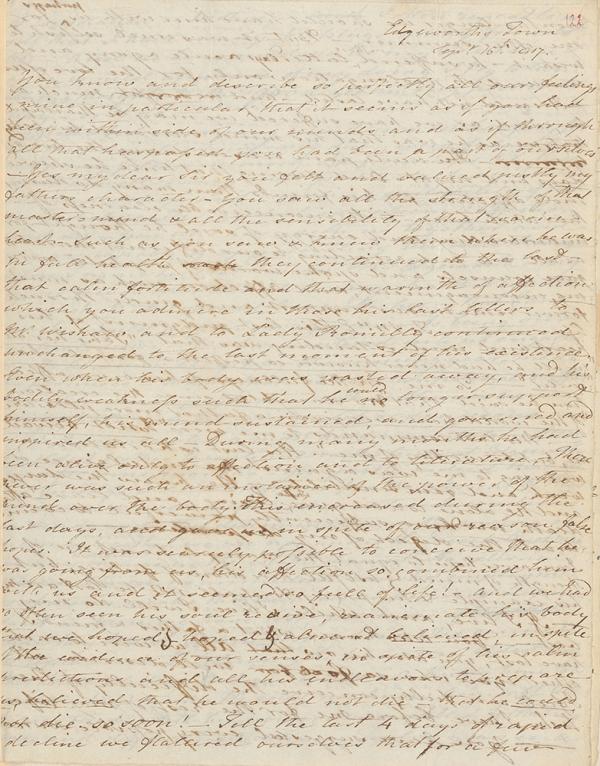 122
Edgeworths Town
Sept 16th 1817.
You know and describe so perfectly all our feelings
& mine in particular, that it seems as if you had
been within side of our minds and as if through
all that has passed you had been a part of
– Yes my dear Sir you felt and valued justly my
fathers character – You saw all the strength of that
master mind & all the sensibility of that warm
heart – Such as you saw & knew them when he was
in full health they continued to the last –
that calm fortitude and that warmth of affection
which you admire in those his last letters to
Mr Wishaw and to Lady Romilly continued
unchanged to the last moment of his existence.
Even when his body was wasted away, and his
bodily weakness such that he could no longer support
himself, his mind sustained, and governed and
inspired us all – During many months he had
been alive only to affection and to literature. There
never was such an instance of the power of the
mind over the body. This encreased during the
last days, and in spite of reason false
hopes. It was scarcely possible to conceive that he
was going from us, his affection so combined him
with us and it seemed so full of life! – and we had
so often seen his soul reanimate his body
that we hoped & hoped & almost believed, in spite
of the evidence of our senses, in spite of his calm
predictions and all his endeavors to prepare
us, believed that he would not die – that he could
not die – so soon! – Till the last 4 days of rapid
decline we flattered ourselves that for a few